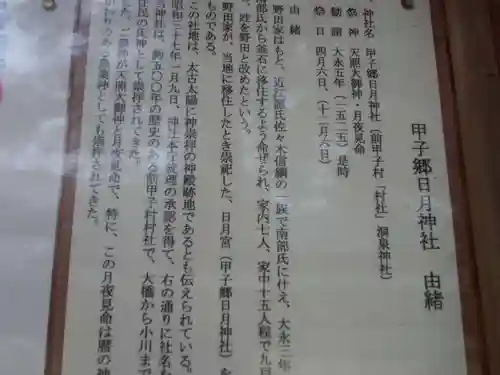 甲子郷日月神社 由緒
神社名 甲子郷日月神社（前甲子村「村社」洞泉神社）
祭神 天照大御神・月夜見命
勧請 大永五年（一五二五）是時
祭日 四月六日、（十二月六日）
由緒
野田家はもと、近江源氏佐々木信綱の一族で南部氏に仕え、大永三年
南部氏から釜石に移住するよう命ぜられ、家内七人、家中十五人程で九月
、姓を野田と改めたという。
野田家が、当地に移住したとき崇祀した、日月宮（甲子郷日月神社）を
ものである。
この社地は、太古太陽に神崇拝の神殿跡地であるとも伝えられている。
昭和二十七年一月九日、神社本庁統理の承認を得て、右の通りに社名
当神社は、約五〇〇年の歴史のある前甲子村村社で、大橋から小川まで
住民の氏神として崇拝されてきた。
ご祭神が天照大御神と月夜見命で、特に、この月夜見命は暦の神
農業神としても崇拝されてきた。